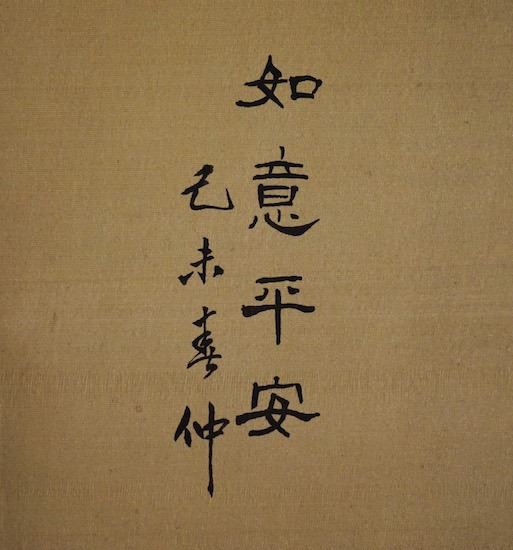 如意平安
己未春仲